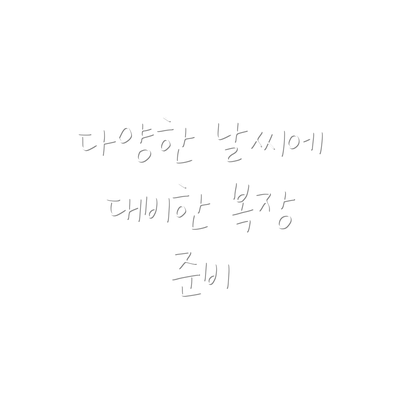 다양한 날씨에
대비한 복장
준비